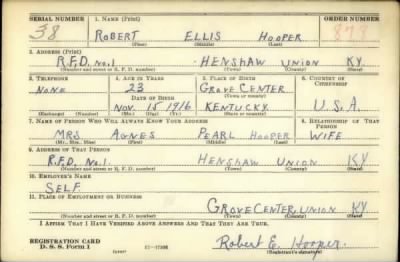 SERIAL NUMBER 1. NAME (Print) ORDER NUMBER
38 ROBERT ELLIS HOOPER 878
(First) (Middle) (Last)
2. ADDRESS (Print)
R.F.D. No.1 HENSHAW UNION KY.
(Number and street or R. F. D. number) (Town) (County) (State)
3. TELEPHONE 4. AGE IN YEARS 5. PLACE OF BIRTH 6. COUNTRY OF CITIZENSHIP
NONE 23 GROVE CENTER
DATE OF BIRTH (Town or county)
NOV. 15 1916 KENTUCKY U.S.A.
(Exchange) (Number) (Mo.) (Day) (Yr.) (State or country)
7. NAME OF PERSON WHO WILL ALWAYS KNOW YOUR ADDRESS 8. RELATIONSHIP OF THAT PERSON
MRS. AGNES PEARL HOOPER WIFE
(Mr., Mrs., Miss) (First) (Middle) (Last)
9. ADDRESS OF THAT PERSON
R.F.D. No.1. HENSHAW UNION KY
(Number and street or R. F. D. number) (Town) (County) (State)
10. EMPLOYER'S NAME
SELF
11. PLACE OF EMPLOYMENT OR BUSINESS
GROVE CENTER, UNION KY
(Number and street or R. F. D. number) (Town) (County) (State)
I AFFIRM THAT I HAVE VERIFIED ABOVE ANSWERS AND THAT THEY ARE TRUE.
REGISTRATION CARD
D. S. S. Form 1 Robert E. Hooper.
(Registrant's signature)